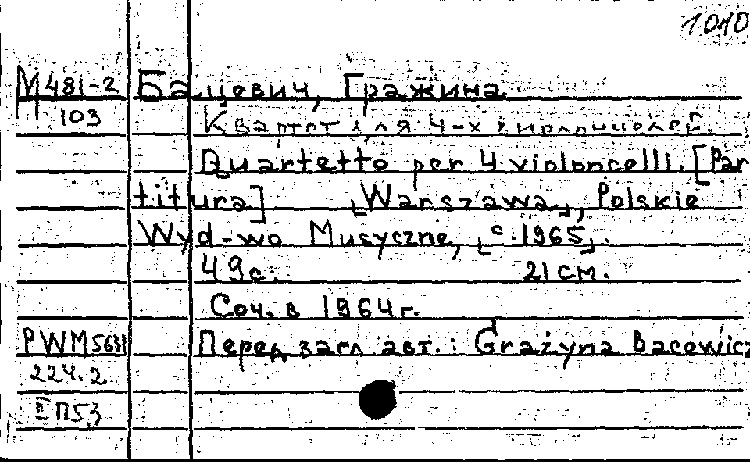 1010
М481-2 Бацевич, Гражина
103 Квартет для 4-х виолончелей.
Quartetto per 4 violoncelli. [Par
titura] [Warszawa], Polskie
Wyd-wo Muzyczne, [c.1965].
49с. 21см.
Соч. в 1964г.
PWM5631 Перед загл. авт.: Grażyna Bacewicz
224.2
II П53